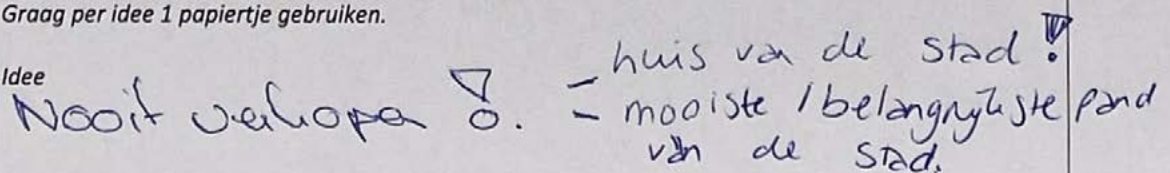 Graag per idee 1 papiertje gebruiken.
Idee
Nooit verkopen!
- huis van de stad!
- mooiste / belangrijkste pand
van de stad.